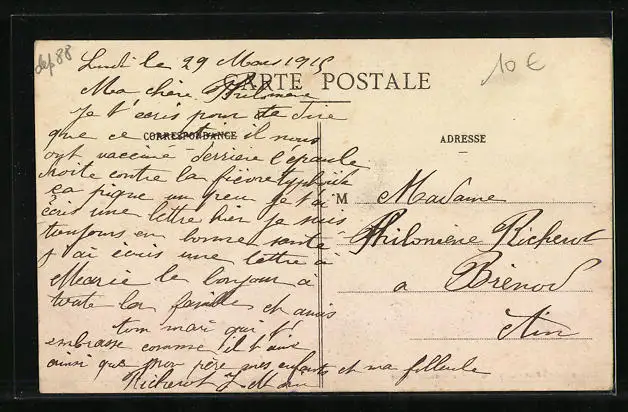 dep 88
10 €
CARTE POSTALE
CORRESPONDANCE
ADRESSE
Lundi le 29 Mars 1915
Ma chère Philomène
Je t'écris pour te dire
que ce matin il nous
ont vacciné derrière l'épaule
droite contre la fièvre typhoïde
ça pique un peu Je t'ai
écris une lettre hier je suis
toujours en bonne santé
j'ai écris une lettre à
Marie le bonjour à
toute la famille et amis
ton mari qui t'
embrasse comme il t'aime
ainsi que mon père mes enfants et ma filleule
Richerot
M Madame
Philomène Richerot
a Brénod
Ain